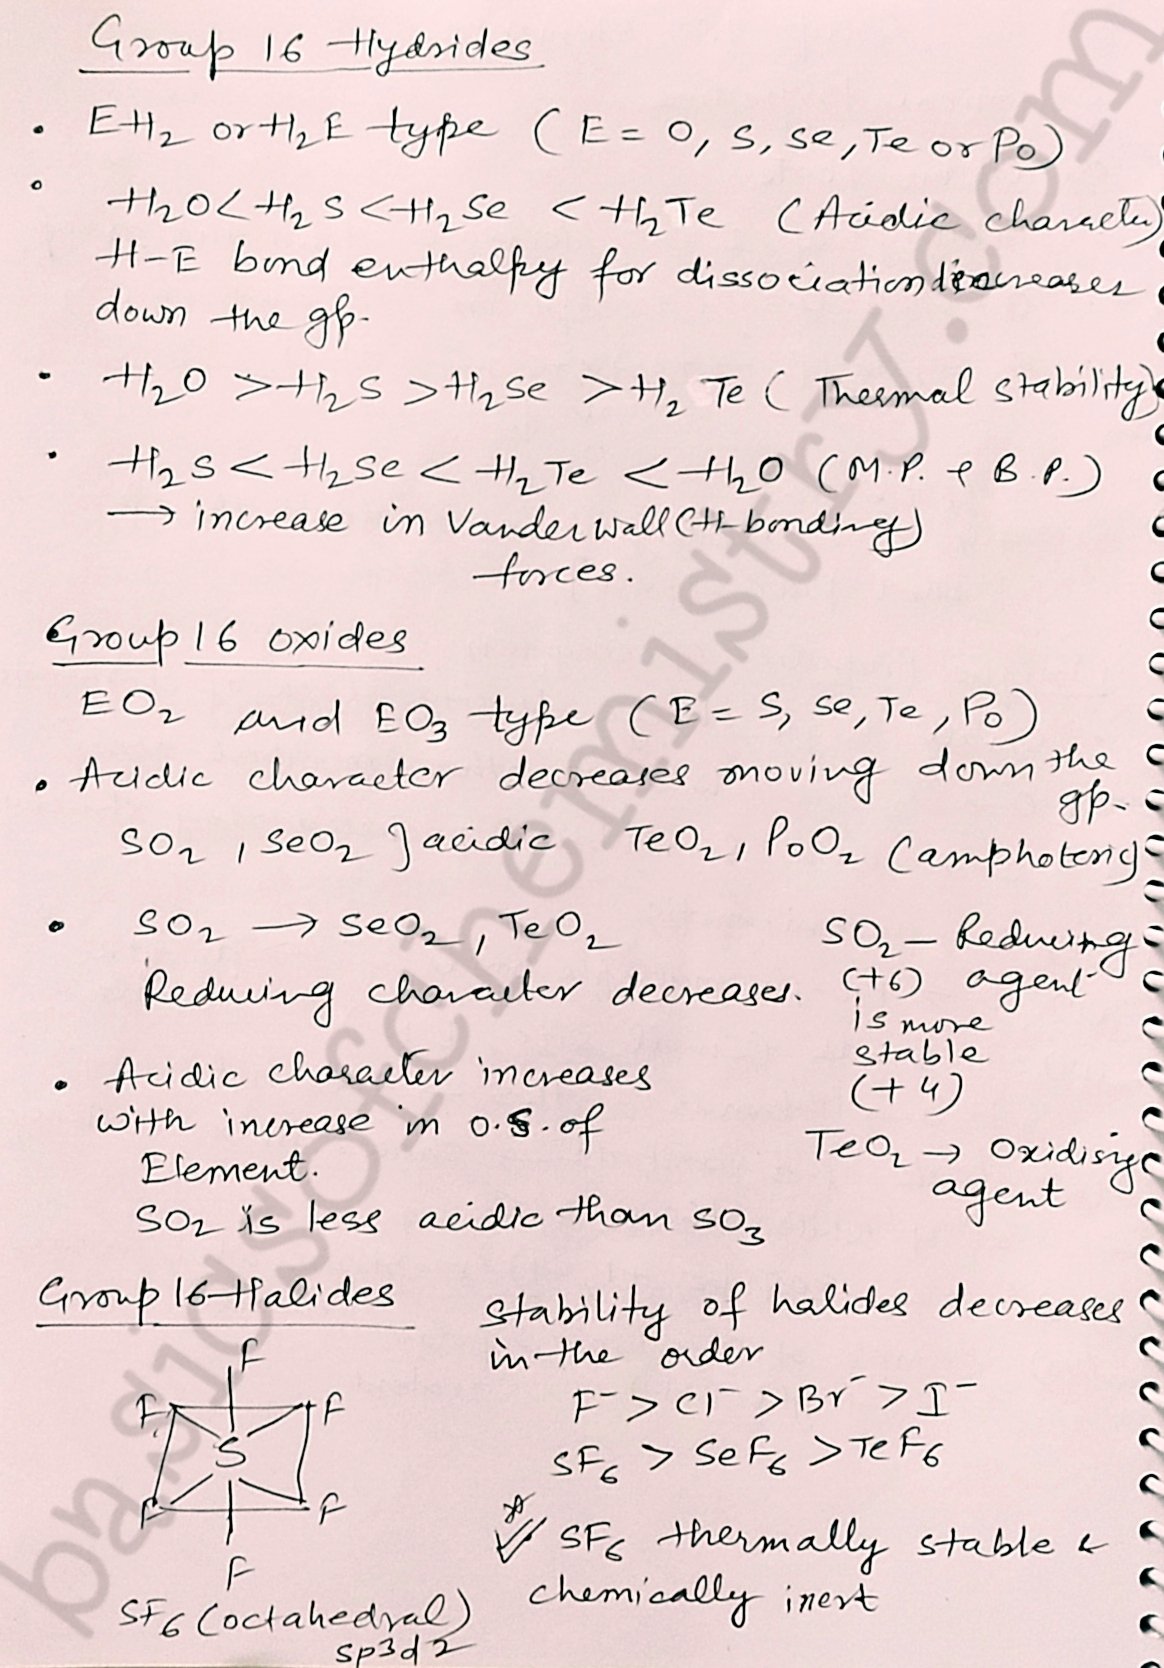 Group 16 Hydrides
• EH2 or H2E type ( E = O, S, Se, Te or Po)
• H2O < H2S < H2Se < H2Te (Acidic character)
H-E bond enthalpy for dissociation decreases
down the gp.
• H2O > H2S > H2Se > H2Te ( Thermal stability)
• H2S < H2Se < H2Te < H2O (M.P. & B.P.)
→ increase in Vanderwall (H-bonding)
forces.
Group 16 oxides
EO2 and EO3 type ( E = S, Se, Te, Po)
• Acidic character decreases moving down the
gp.
SO2, SeO2 } acidic TeO2, PoO2 (amphoteric)
• SO2 → SeO2, TeO2
Reducing character decreases.
SO2 – Reducing
(+6) agent
is more
stable
(+4)
TeO2 → Oxidising
agent
• Acidic character increases
with increase in O.S. of
Element.
SO2 is less acidic than SO3
Group 16 Halides
F
F F
S
F F
F
SF6 (octahedral)
sp3d2
stability of halides decreases
in the order
F⁻ > Cl⁻ > Br⁻ > I⁻
SF6 > SeF6 > TeF6
SF6 thermally stable &
chemically inert
basicsofchemistry.com